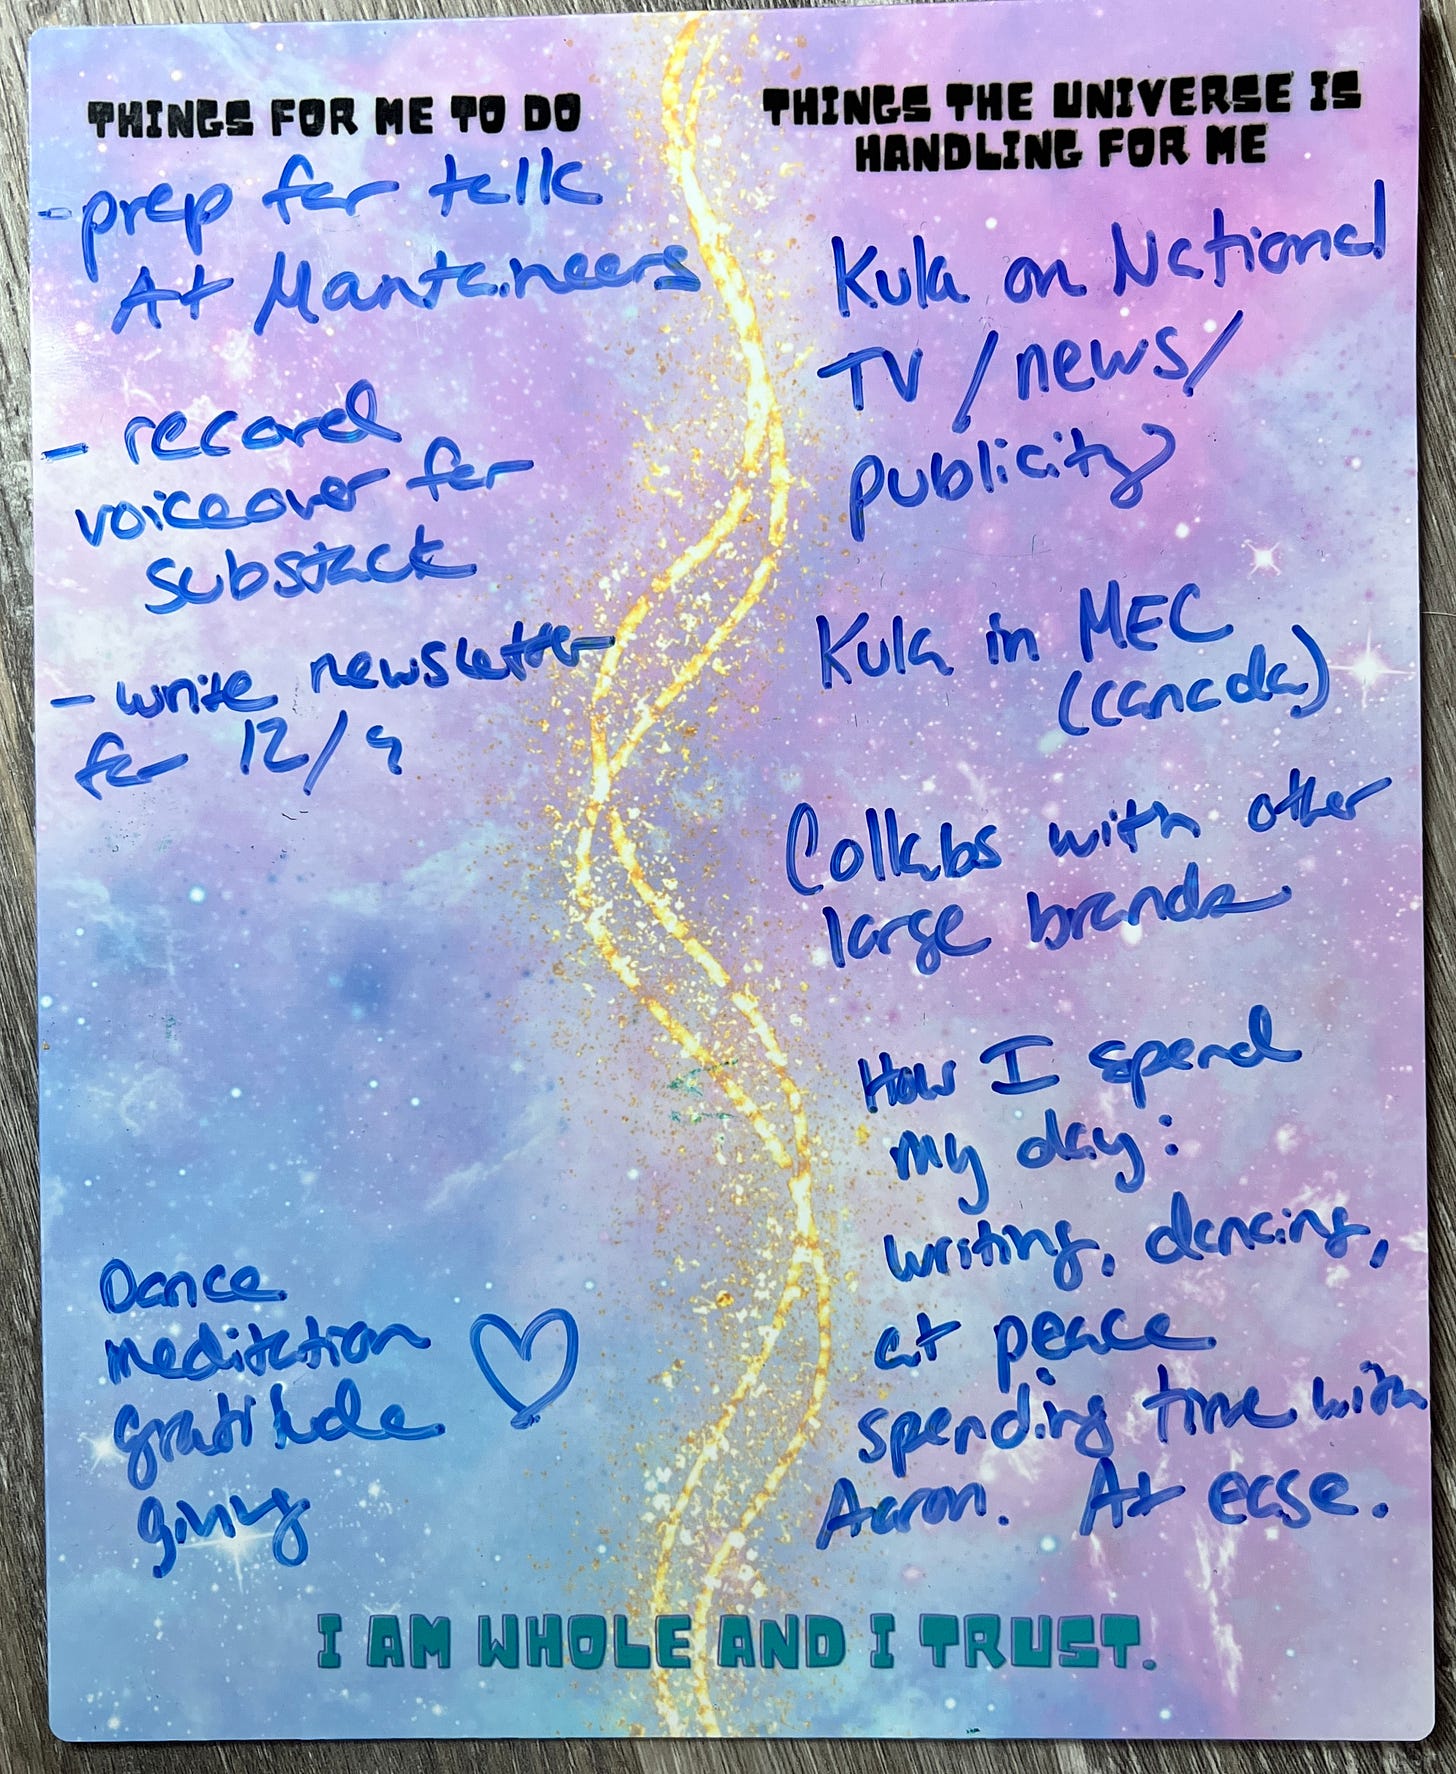 THINGS FOR ME TO DO
- prep for talk
At Mantaineers
- record
voiceover for
substack
- write newsletter
for 12/9
Dance
meditation
gratitude
giving
THINGS THE UNIVERSE IS
HANDLING FOR ME
Kula on National
TV / news /
publicity
Kula in MEC
(canada)
Collabs with other
large brands
How I spend
my day:
writing, dancing,
at peace
spending time with
Aaron. At ease.
I AM WHOLE AND I TRUST.